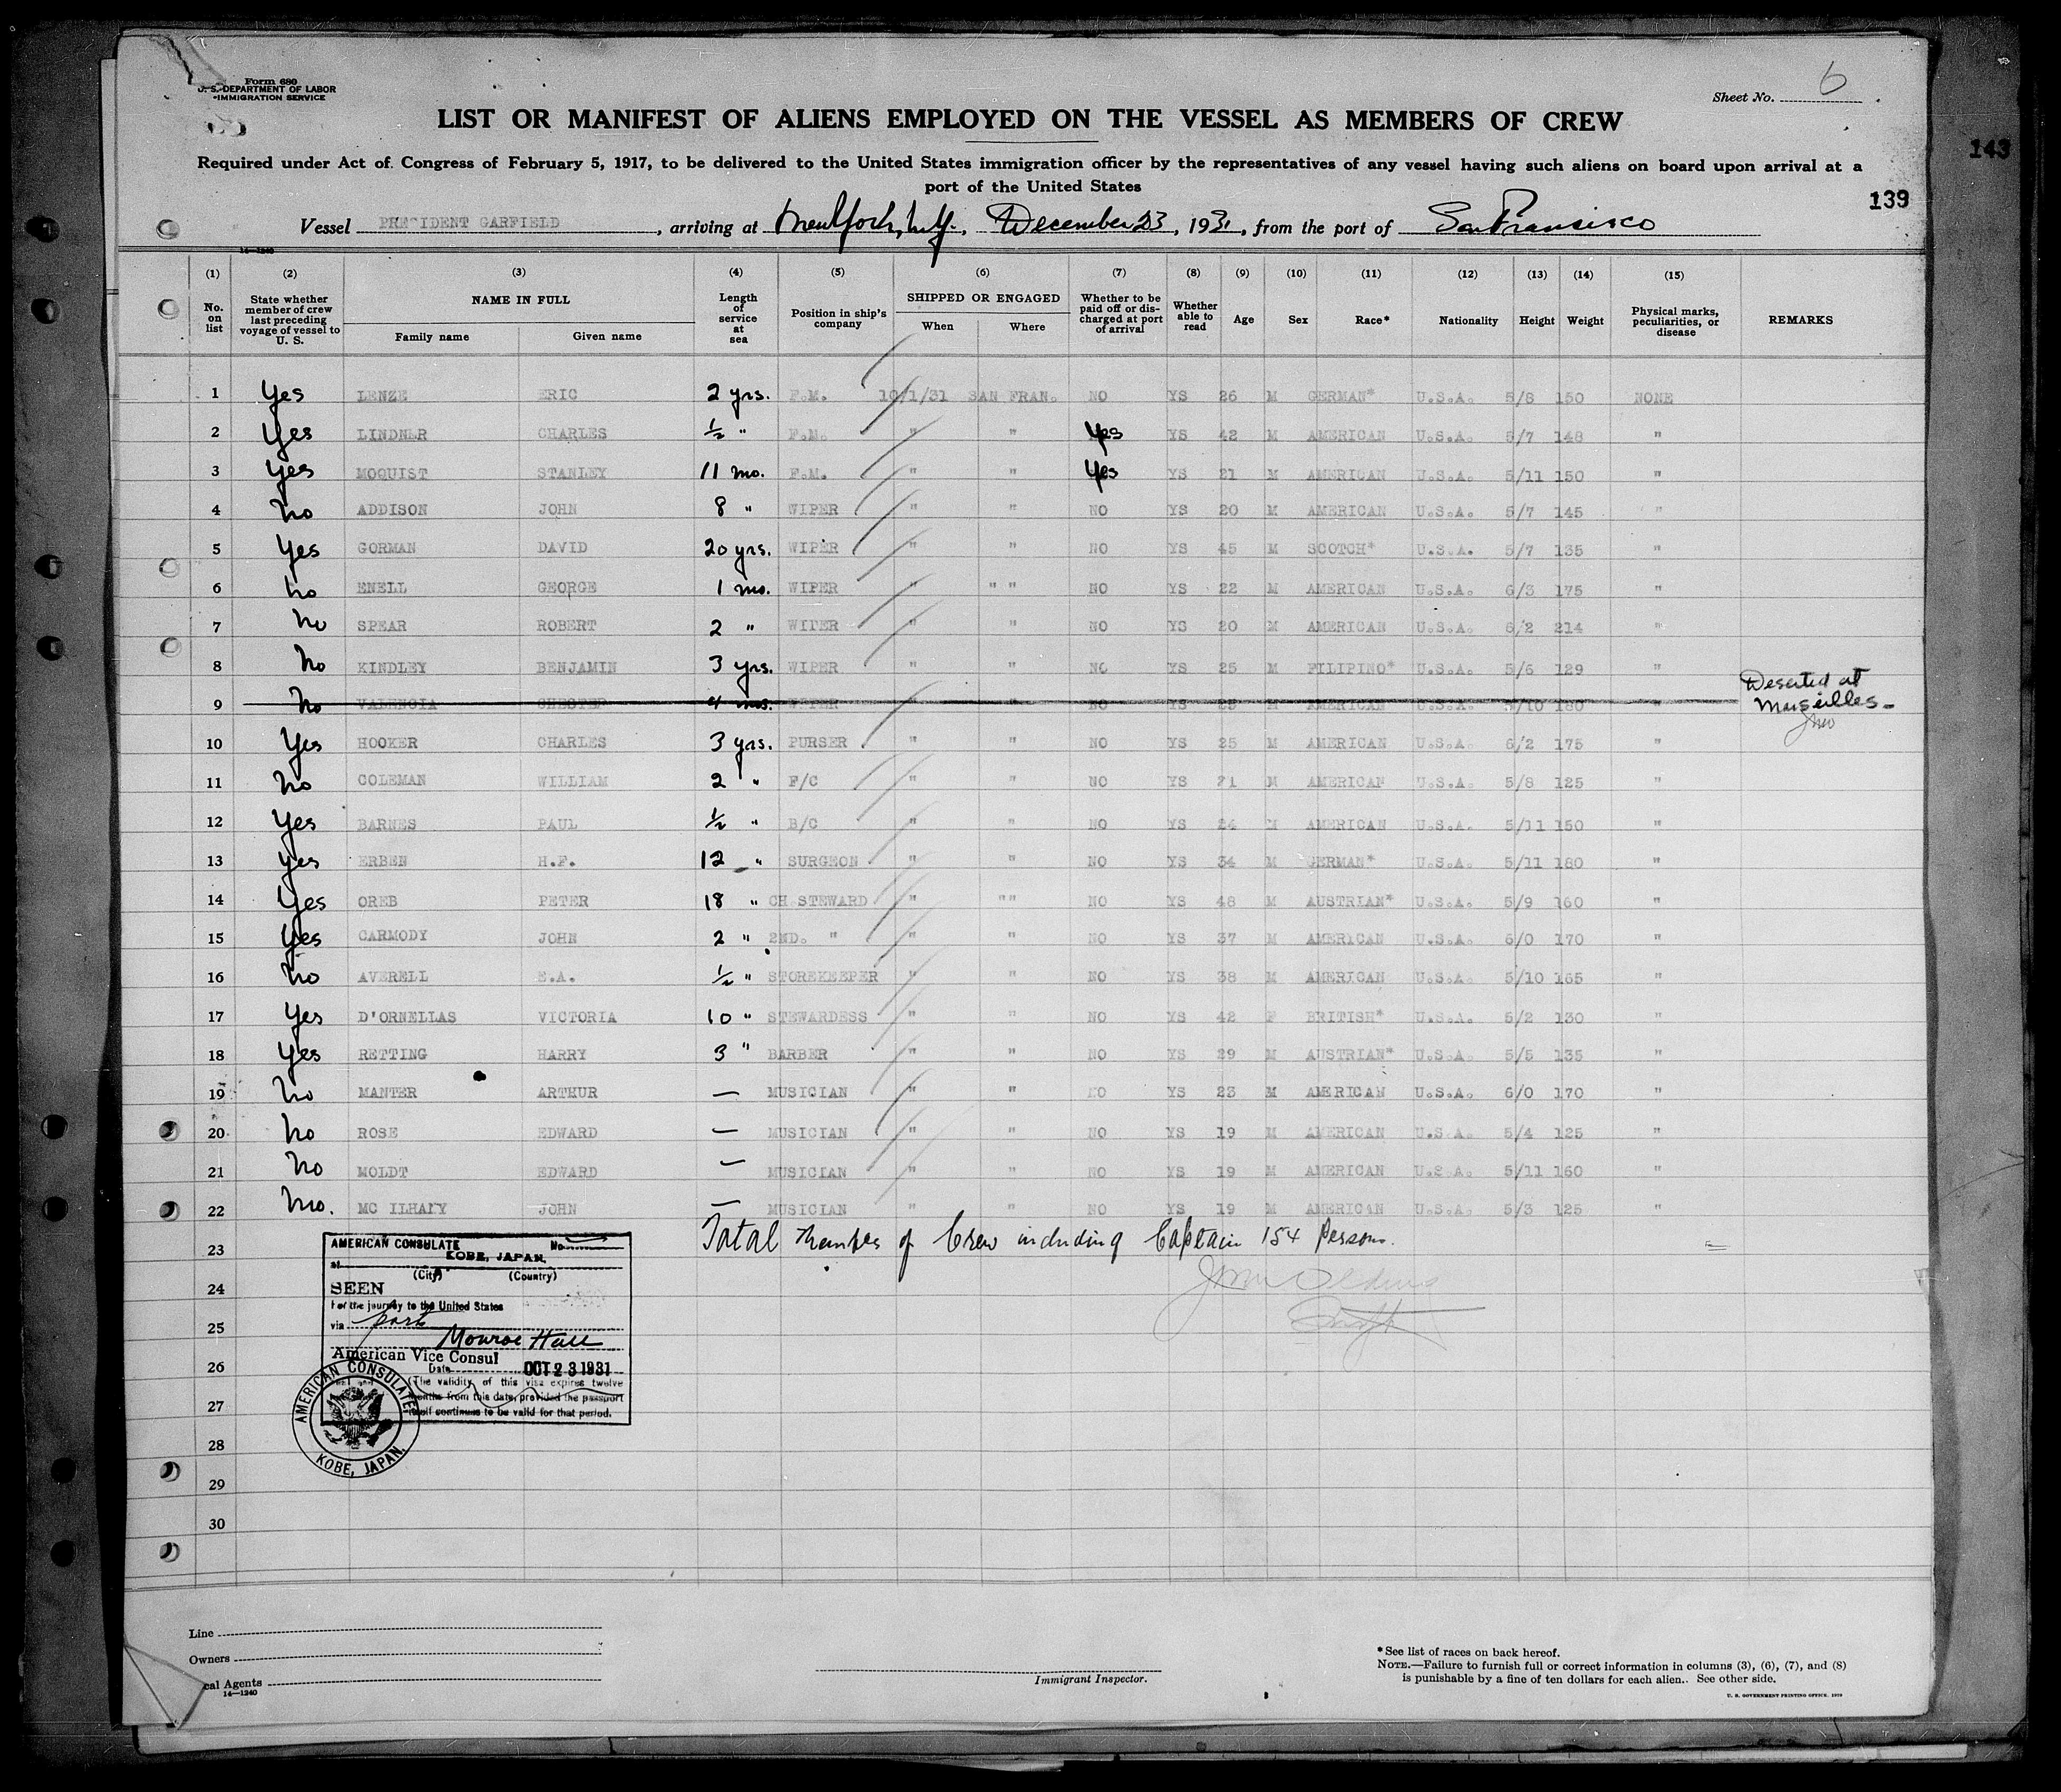 Form 680
U. S. DEPARTMENT OF LABOR
IMMIGRATION SERVICE
Sheet No. 6
LIST OR MANIFEST OF ALIENS EMPLOYED ON THE VESSEL AS MEMBERS OF CREW
143
Required under Act of Congress of February 5, 1917, to be delivered to the United States immigration officer by the representatives of any vessel having such aliens on board upon arrival at a
port of the United States
139
Vessel PRESIDENT GARFIELD, arriving at New York, N.Y., December 23, 1931, from the port of San Francisco
14—1240
(1) (2) (3) (4) (5) (6) (7) (8) (9) (10) (11) (12) (13) (14) (15)
No. on list State whether member of crew last preceding voyage of vessel to U. S. NAME IN FULL Family name Given name Length of service at sea Position in ship's company SHIPPED OR ENGAGED When Where Whether to be paid off or discharged at port of arrival Whether able to read Age Sex Race* Nationality Height Weight Physical marks, peculiarities, or disease REMARKS
1 Yes LENZE ERIC 2 yrs. F.M. 10/1/31 SAN FRAN. NO YS 26 M GERMAN* U.S.A. 5/8 150 NONE
2 Yes LINDNER CHARLES ½ " F.M. " " Yes YS 42 M AMERICAN U.S.A. 5/7 148 "
3 Yes MOQUIST STANLEY 11 mo. F.M. " " Yes YS 21 M AMERICAN U.S.A. 5/11 150 "
4 No ADDISON JOHN 8 " WIPER " " NO YS 20 M AMERICAN U.S.A. 5/7 145 "
5 Yes GORMAN DAVID 20 yrs. WIPER " " NO YS 45 M SCOTCH* U.S.A. 5/7 135 "
6 No ENELL GEORGE 1 mo. WIPER " " " NO YS 22 M AMERICAN U.S.A. 6/3 175 "
7 No SPEAR ROBERT 2 " WIPER " " NO YS 20 M AMERICAN U.S.A. 6/2 214 "
8 No KINDLEY BENJAMIN 3 yrs. WIPER " " NO YS 25 M FILIPINO* U.S.A. 5/6 129 "
9 No VALENCIA CHESTER 4 mos. WIPER " " NO YS 25 M AMERICAN U.S.A. 5/10 180 " Deserted at Marseilles-
10 Yes HOOKER CHARLES 3 yrs. PURSER " " NO YS 25 M AMERICAN U.S.A. 6/2 175 "
11 No COLEMAN WILLIAM 2 " F/C " " NO YS 21 M AMERICAN U.S.A. 5/8 125 "
12 Yes BARNES PAUL ½ " B/C " " NO YS 24 M AMERICAN U.S.A. 5/11 150 "
13 Yes ERBEN H.F. 12 " SURGEON " " NO YS 34 M GERMAN* U.S.A. 5/11 180 "
14 Yes OREB PETER 18 " CH. STEWARD " "" NO YS 48 M AUSTRIAN* U.S.A. 5/9 160 "
15 Yes CARMODY JOHN 2 " 2ND. " " " NO YS 37 M AMERICAN U.S.A. 6/0 170 "
16 No AVERELL E.A. ½ " STOREKEEPER " " NO YS 38 M AMERICAN U.S.A. 5/10 165 "
17 Yes D'ORNELLAS VICTORIA 10 " STEWARDESS " " NO YS 42 F BRITISH* U.S.A. 5/2 130 "
18 Yes RETTING HARRY 3 " BARBER " " NO YS 29 M AUSTRIAN* U.S.A. 5/5 135 "
19 No MANTER ARTHUR — MUSICIAN " " NO YS 23 M AMERICAN U.S.A. 6/0 170 "
20 No ROSE EDWARD — MUSICIAN " " NO YS 19 M AMERICAN U.S.A. 5/4 125 "
21 No MOLDT EDWARD — MUSICIAN " " NO YS 19 M AMERICAN U.S.A. 5/11 160 "
22 No. MC ILHANY JOHN — MUSICIAN " " NO YS 19 M AMERICAN U.S.A. 5/3 125 "
23 Total Members of Crew including Captain 154 Persons.
24
25
26
27
28
29
30
AMERICAN CONSULATE No.
at KOBE, JAPAN.
(City) (Country)
SEEN
For the journey to the United States
via ports
Monroe Hall
American Vice Consul
Date OCT 23 1931
(The validity of this visa expires twelve
months from this date, provided the passport
itself continues to be valid for that period.
AMERICAN CONSULATE
KOBE, JAPAN.
Line
Owners
cal Agents
14—1240
Immigrant Inspector.
* See list of races on back hereof.
NOTE.—Failure to furnish full or correct information in columns (3), (6), (7), and (8)
is punishable by a fine of ten dollars for each alien.. See other side.
U. S. GOVERNMENT PRINTING OFFICE. 1929